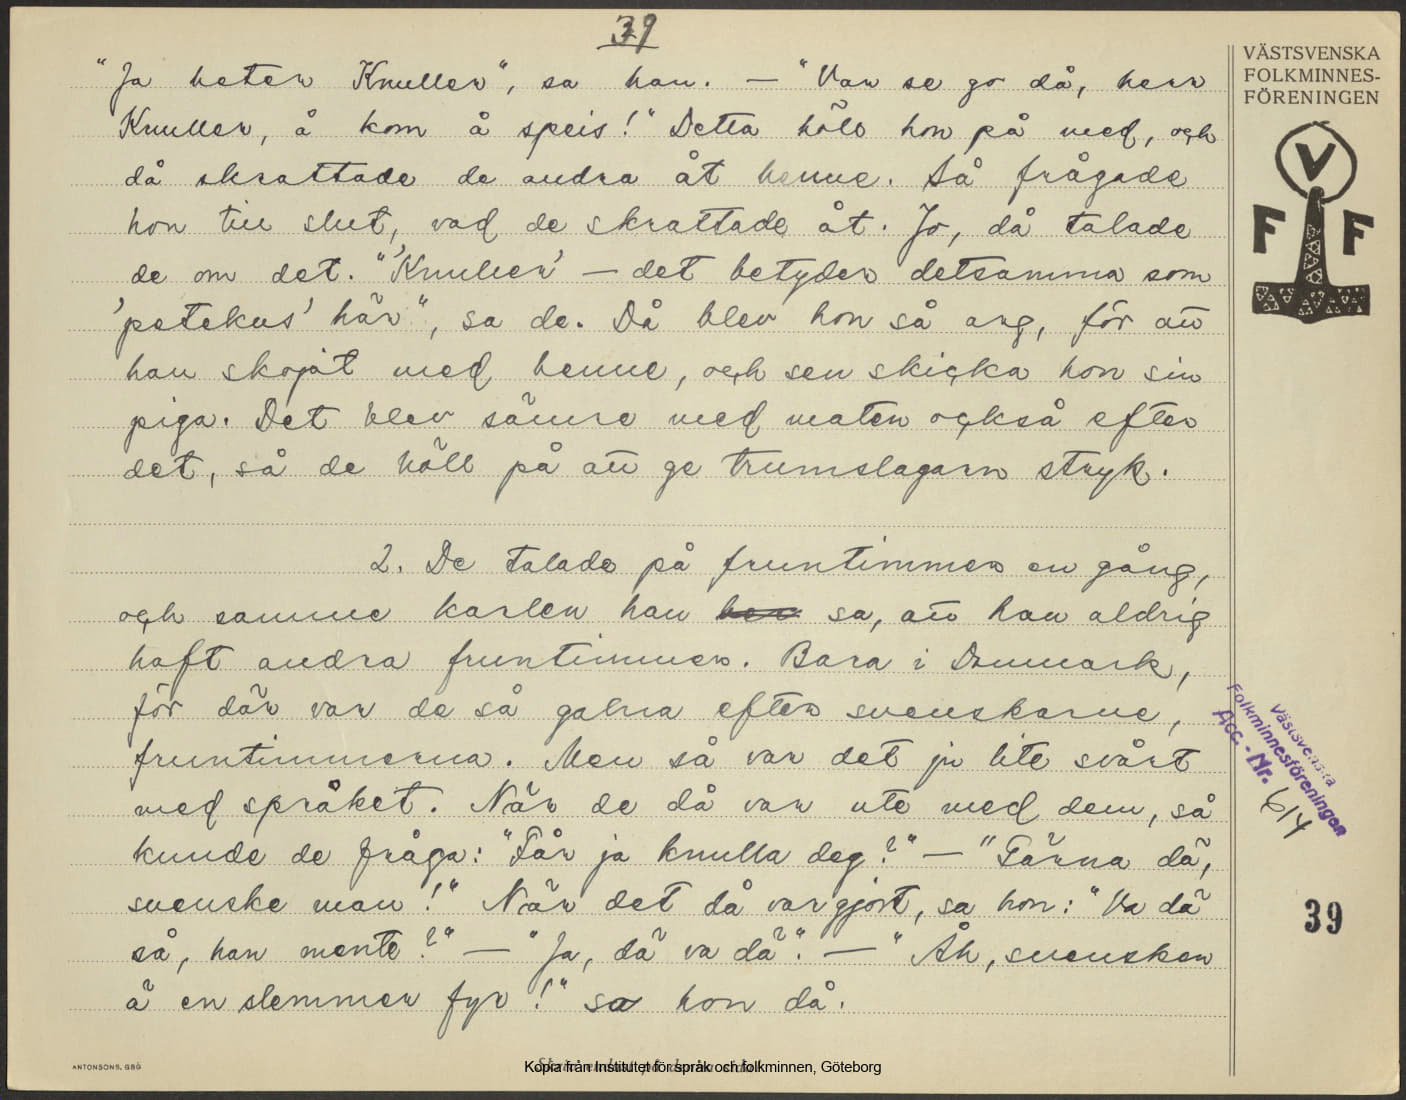 39
VÄSTSVENSKA
FOLKMINNES-
FÖRENINGEN
"Ja heter Knuller", sa han. — "Var se go då, herr
Knuller, å kom å speis!" Detta höll hon på med, och
då skrattade de andra åt henne. Så frågade
hon till slut, vad de skrattade åt. Jo, då talade
de om det. "'Knuller' — det betyder detsamma som
'petekus' här", sa de. Då blev hon så arg, för att
han skojat med henne, och sen skicka hon sin
piga. Det blev sämre med maten också efter
det, så de höll på att ge trumslagarn stryk.
2. De talade på fruntimmer en gång,
och samme karlen han sa, att han aldrig
haft andra fruntimmer. Bara i Danmark,
för där var de så galna efter svenskarne,
fruntimmerna. Men så var det ju lite svårt
med språket. När de då var ute med dem, så
kunde de fråga: "Får ja knulla deg?" — "Gärna dä,
svenske man!" När det då var gjort, sa hon: "Va dä
så, han mente?" — "Ja, dä va dä". — "Åh, svensken
ä en slemmer fyr!" sa hon då.
V
F F
Västsvenska
Folkminnesföreningen
Acc.-Nr. 614
39
ANTONSONS, GBG
Kopia från Institutet för språk och folkminnen, Göteborg